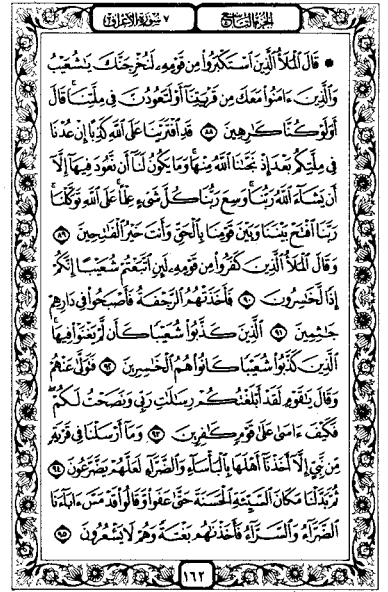 الجزء التاسع
٧ سورة الأعراف
۞ قَالَ ٱلْمَلَأُ ٱلَّذِينَ ٱسْتَكْبَرُوا۟ مِن قَوْمِهِۦ لَنُخْرِجَنَّكَ يَـٰشُعَيْبُ
وَٱلَّذِينَ ءَامَنُوا۟ مَعَكَ مِن قَرْيَتِنَآ أَوْ لَتَعُودُنَّ فِى مِلَّتِنَا ۚ قَالَ
أَوَلَوْ كُنَّا كَـٰرِهِينَ ٨٨ قَدِ ٱفْتَرَيْنَا عَلَى ٱللَّهِ كَذِبًا إِنْ عُدْنَا
فِى مِلَّتِكُم بَعْدَ إِذْ نَجَّىٰنَا ٱللَّهُ مِنْهَا ۚ وَمَا يَكُونُ لَنَآ أَن نَّعُودَ فِيهَآ إِلَّآ
أَن يَشَآءَ ٱللَّهُ رَبُّنَا ۚ وَسِعَ رَبُّنَا كُلَّ شَىْءٍ عِلْمًا ۚ عَلَى ٱللَّهِ تَوَكَّلْنَا ۚ
رَبَّنَا ٱفْتَحْ بَيْنَنَا وَبَيْنَ قَوْمِنَا بِٱلْحَقِّ وَأَنتَ خَيْرُ ٱلْفَـٰتِحِينَ ٨٩
وَقَالَ ٱلْمَلَأُ ٱلَّذِينَ كَفَرُوا۟ مِن قَوْمِهِۦ لَئِنِ ٱتَّبَعْتُمْ شُعَيْبًا إِنَّكُمْ
إِذًا لَّخَـٰسِرُونَ ٩٠ فَأَخَذَتْهُمُ ٱلرَّجْفَةُ فَأَصْبَحُوا۟ فِى دَارِهِمْ
جَـٰثِمِينَ ٩١ ٱلَّذِينَ كَذَّبُوا۟ شُعَيْبًا كَأَن لَّمْ يَغْنَوْا۟ فِيهَا ۚ
ٱلَّذِينَ كَذَّبُوا۟ شُعَيْبًا كَانُوا۟ هُمُ ٱلْخَـٰسِرِينَ ٩٢ فَتَوَلَّىٰ عَنْهُمْ
وَقَالَ يَـٰقَوْمِ لَقَدْ أَبْلَغْتُكُمْ رِسَـٰلَـٰتِ رَبِّى وَنَصَحْتُ لَكُمْ ۖ
فَكَيْفَ ءَاسَىٰ عَلَىٰ قَوْمٍ كَـٰفِرِينَ ٩٣ وَمَآ أَرْسَلْنَا فِى قَرْيَةٍ
مِّن نَّبِىٍّ إِلَّآ أَخَذْنَآ أَهْلَهَا بِٱلْبَأْسَآءِ وَٱلضَّرَّآءِ لَعَلَّهُمْ يَضَّرَّعُونَ ٩٤
ثُمَّ بَدَّلْنَا مَكَانَ ٱلسَّيِّئَةِ ٱلْحَسَنَةَ حَتَّىٰ عَفَوا۟ وَّقَالُوا۟ قَدْ مَسَّ ءَابَآءَنَا
ٱلضَّرَّآءُ وَٱلسَّرَّآءُ فَأَخَذْنَـٰهُم بَغْتَةً وَهُمْ لَا يَشْعُرُونَ ٩٥
١٦٢